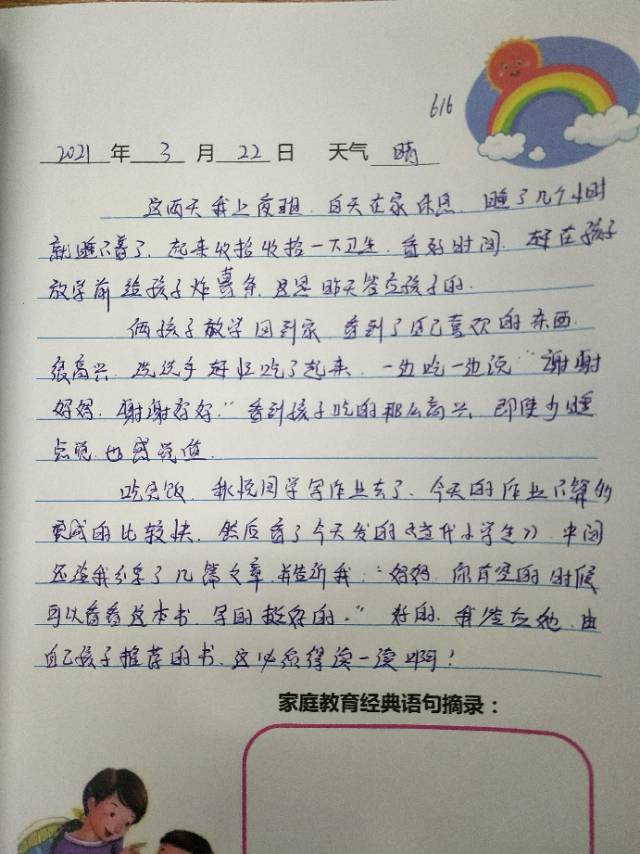 616
2021 年 3 月 22 日 天气 晴
这两天我上夜班，白天在家休息，睡了几个小时
就睡不着了，起来收拾收拾一下卫生，看好时间，赶在孩子
放学前给孩子炸薯条，这是昨天答应孩子的。
俩孩子放学回到家，看到了自己喜欢的东西，
很高兴，洗洗手赶忙吃了起来，一边吃一边说"谢谢
妈妈，谢谢妈妈。"看到孩子吃的那么高兴，即使少睡
点觉也感觉值。
吃完饭，悦同学写作业去了，今天的作业不算多
完成的比较快，然后看了今天发的《当代小学生》，中间
还给我分享了几篇文章，并告诉我："妈妈，你有空的时候
可以看看这本书，写的挺好的。"好的，我答应她，由
自己孩子推荐的书，这必须得读一读啊！
家庭教育经典语句摘录：